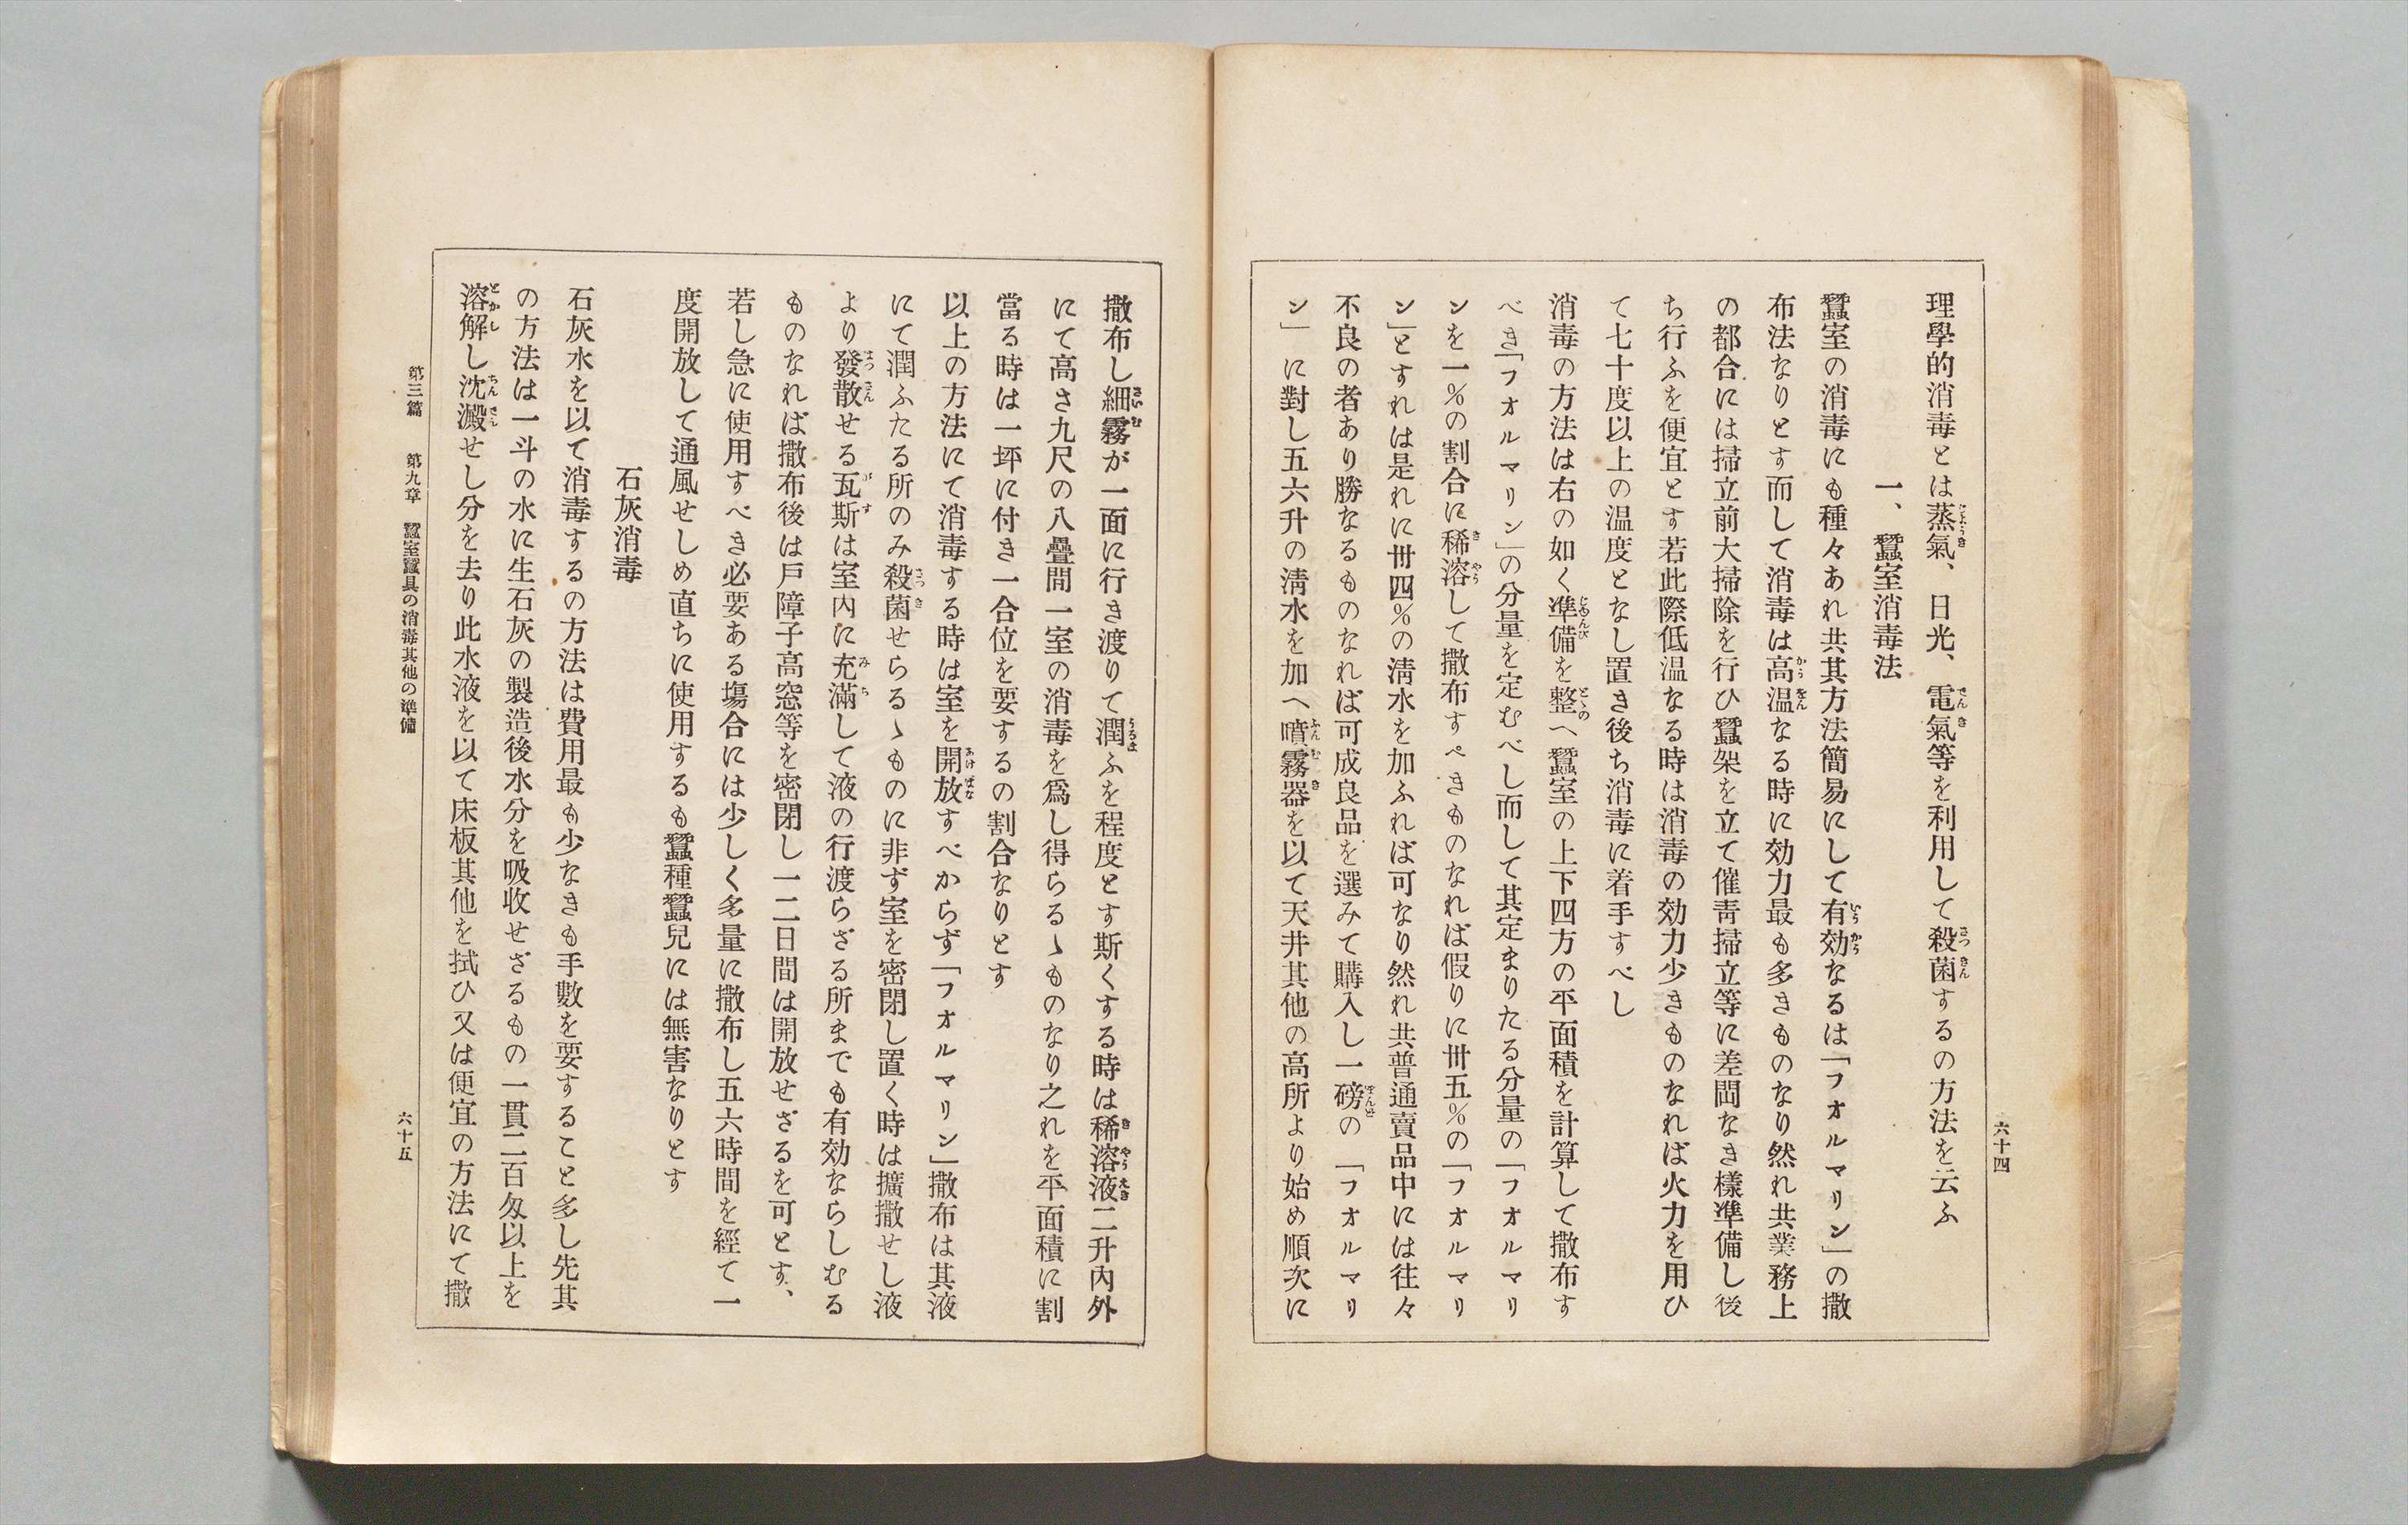 六十四
理學的消毒とは蒸氣、日光、電氣等を利用して殺菌するの方法を云ふ
一、蠶室消毒法
蠶室の消毒にも種々あれ共其方法簡易にして有効なるは「フオルマリン」の撒
布法なりとす而して消毒は高温なる時に効力最も多きものなり然れ共業務上
の都合には掃立前大掃除を行ひ蠶架を立て催靑掃立等に差閊なき樣準備し後
ち行ふを便宜とす若此際低温なる時は消毒の効力少きものなれば火力を用ひ
て七十度以上の温度となし置き後ち消毒に着手すべし
消毒の方法は右の如く準備を整へ蠶室の上下四方の平面積を計算して撒布す
べき「フオルマリン」の分量を定むべし而して其定まりたる分量の「フオルマリ
ンを一%の割合に稀溶して撒布すべきものなれば假りに卅五%の「フオルマリ
ン」とすれは是れに卅四%の淸水を加ふれば可なり然れ共普通賣品中には往々
不良の者あり勝なるものなれば可成良品を選みて購入し一磅の「フオルマリ
ン」に對し五六升の淸水を加へ噴霧器を以て天井其他の高所より始め順次に
撒布し細霧が一面に行き渡りて潤ふを程度とす斯くする時は稀溶液二升內外
にて高さ九尺の八疊間一室の消毒を爲し得らるゝものなり之れを平面積に割
當る時は一坪に付き一合位を要するの割合なりとす
以上の方法にて消毒する時は室を開放すべからず「フオルマリン」撒布は其液
にて潤ふたる所のみ殺菌せらるゝものに非ず室を密閉し置く時は擴撒せし液
より發散せる瓦斯は室內に充滿して液の行渡らざる所までも有効ならしむる
ものなれば撒布後は戸障子高窓等を密閉し一二日間は開放せざるを可とす、
若し急に使用すべき必要ある塲合には少しく多量に撒布し五六時間を經て一
度開放して通風せしめ直ちに使用するも蠶種蠶兒には無害なりとす
石灰消毒
石灰水を以て消毒するの方法は費用最も少なきも手數を要すること多し先其
の方法は一斗の水に生石灰の製造後水分を吸收せざるもの一貫二百匁以上を
溶解し沈澱せし分を去り此水液を以て床板其他を拭ひ又は便宜の方法にて撒
第三篇 第九章 蠶室蠶具の消毒其他の準備
六十五